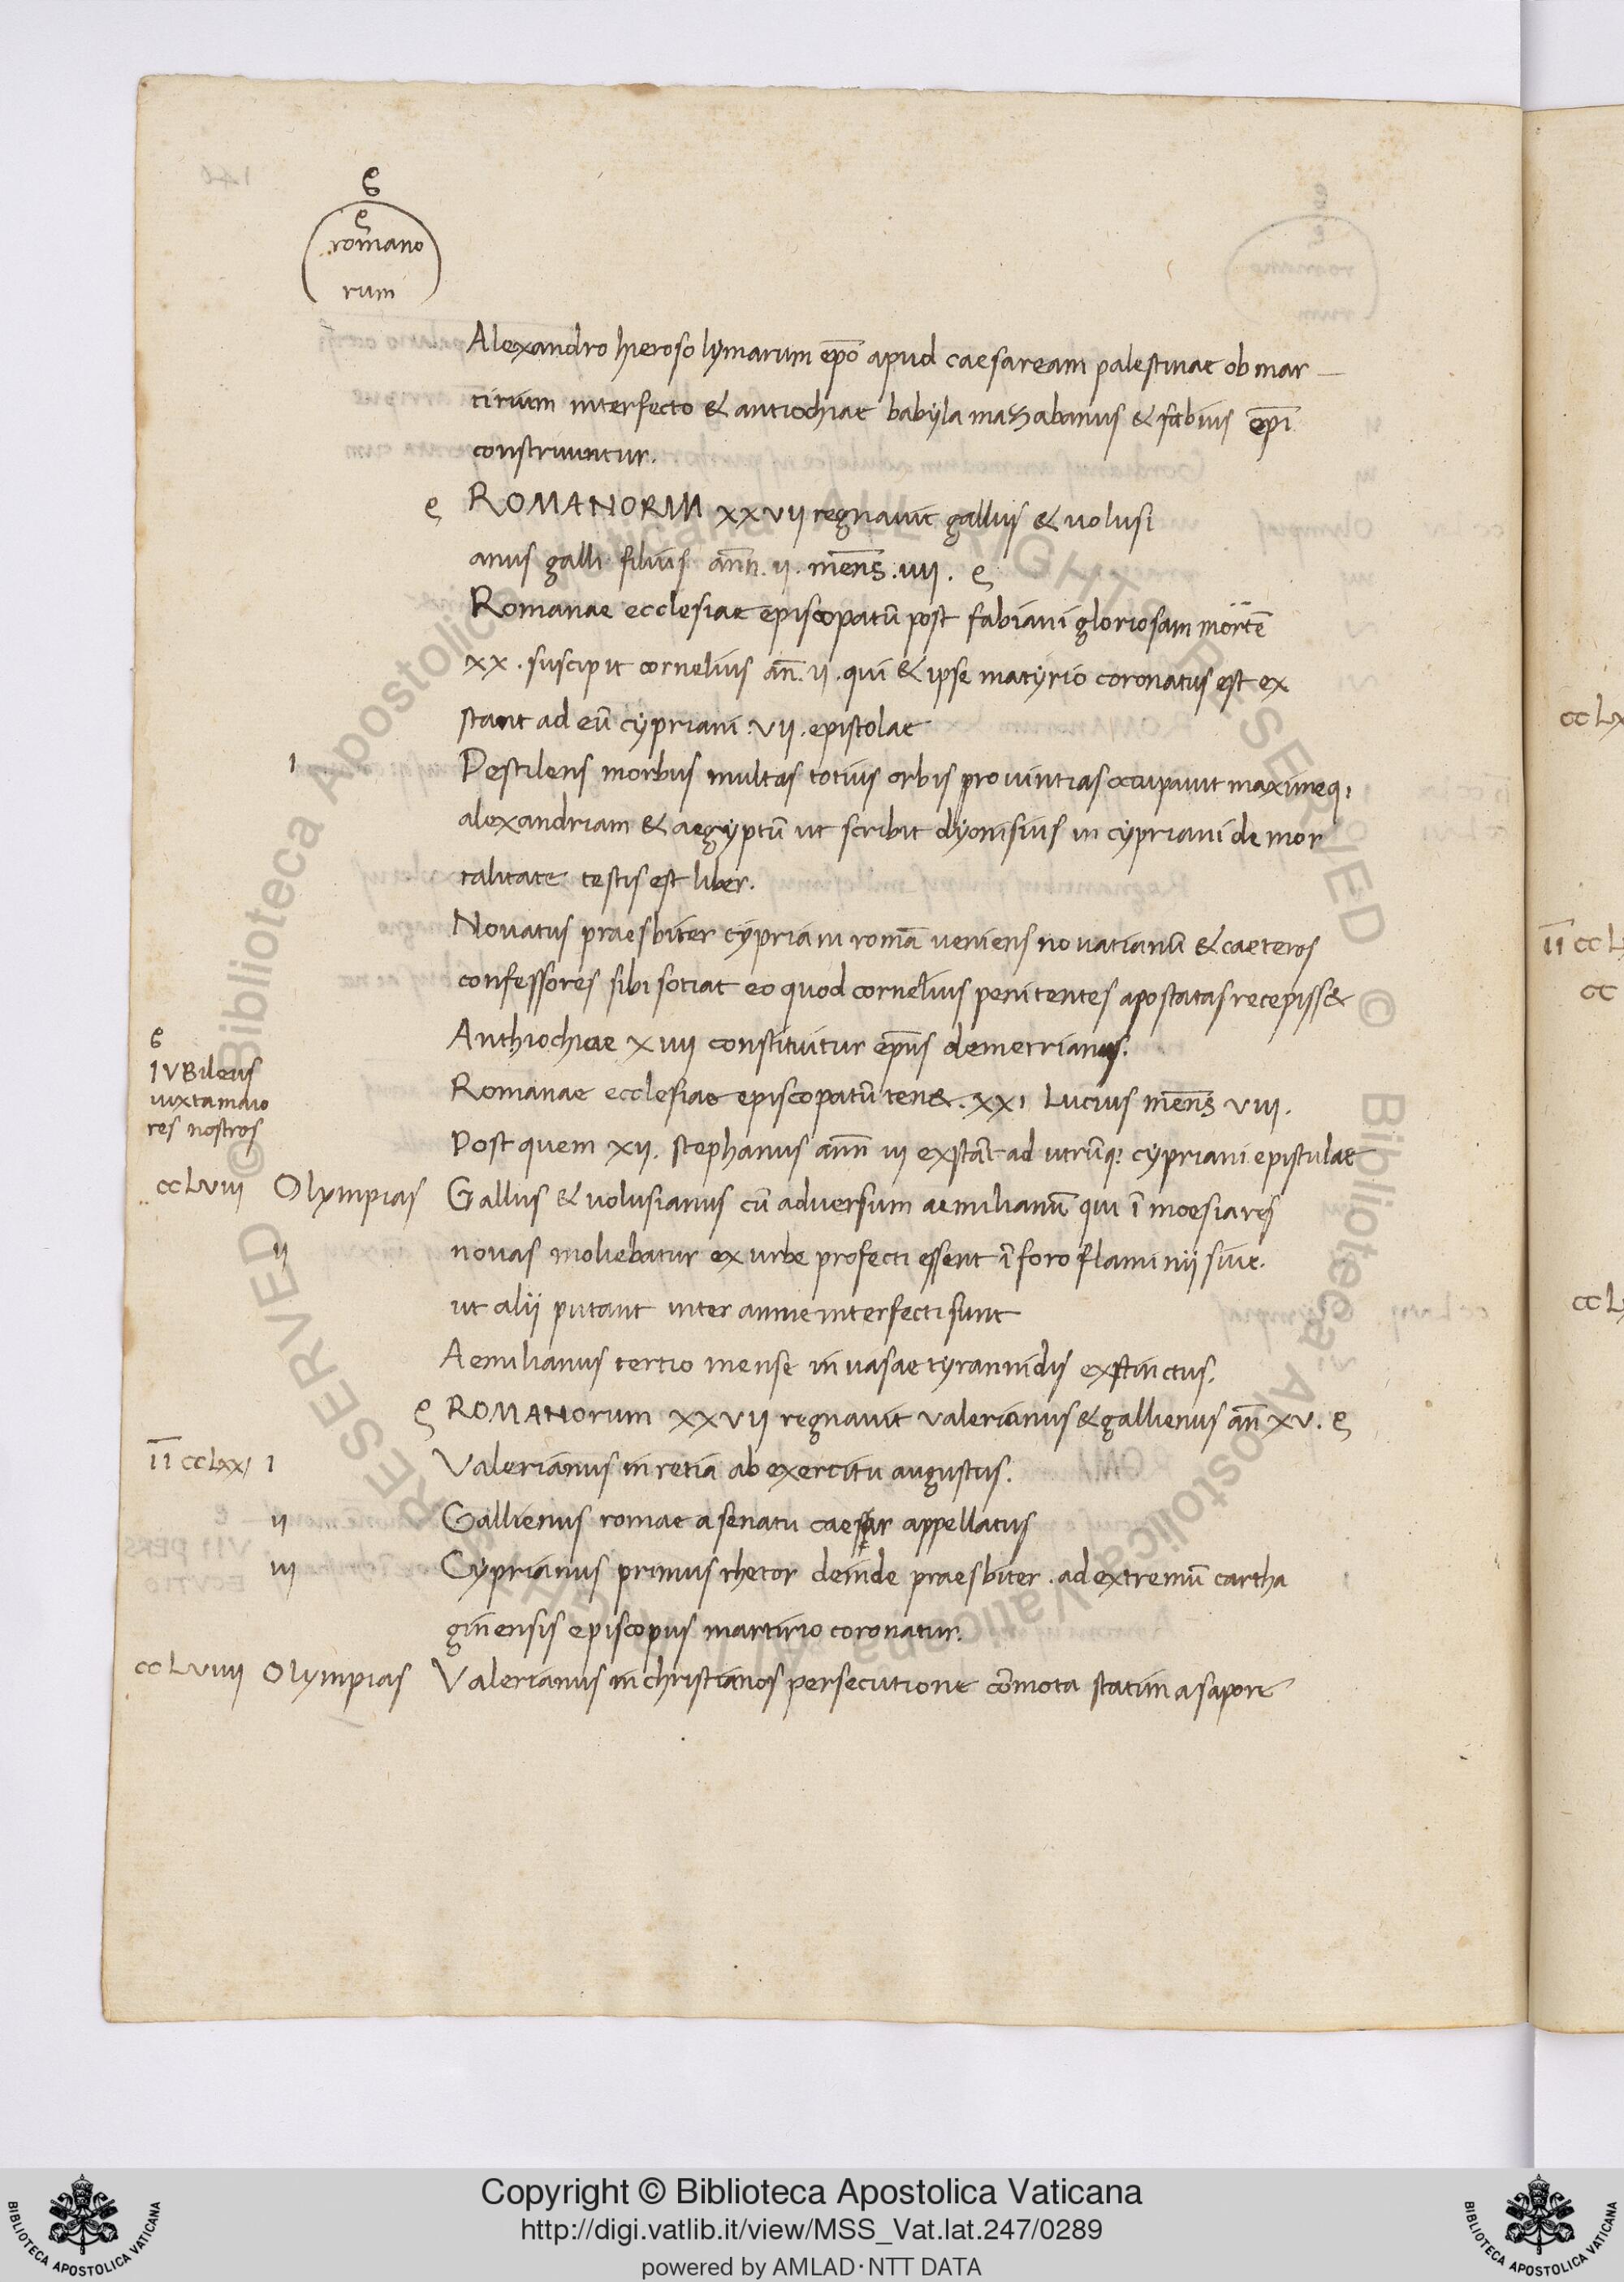 romano
rum
Alexandro hierosolymarum ep̄o apud caesaream palestinae ob mar
tirium interfecto & antiochiae babyla mazabanus & fabius ep̄i
construuntur.
ROMANORUM XXVII regnavit gallus & volusi
anus galli filius ann̄. II. mens̄. IIII.
Romanae ecclesiae episcopatū post fabiani gloriosam mortē
XX. suscipit cornelius an̄. II. qui & ipse matyrio coronatus est ex
stant ad eū cypriani. VII. epistolae
I Pestilens morbus multas totius orbis provintias occupavit maximeq;
alexandriam & aegyptū ut scribit dyonisius in cypriani de mor
talitate testis est liber.
Novatus praesbiter cypriani romā veniens novatianū & caeteros
confessores sibi sotiat eo quod cornelius penitentes apostatas recepiss&
Anthiochiae XIIII constituitur ep̄us demetrianus.
IVBileus
iuxta maio
res nostros
Romanae ecclesiae episcopatū ten&. XXI Lucius mens̄ VIII.
Post quem XII. stephanus ann̄ III exstāt ad utrūq; cypriani epistulae
CCLVIII Olympias Gallus & volusianus cū adversum aemilianū qui ī moesia res
II novas moliebatur ex urbe profecti essent ī foro flaminii sive.
ut alii putant inter amne interfecti sunt
Aemilianus tertio mense invasae tyrannidis exstinctus.
ROMANorum XXVII regnavit valerianus & gallienus an̄ XV.
IĪ CCLXXI I Valerianus in retia ab exercitu augustus.
II Gallienus romae a senatu caesar appellatus
III Cyprianus primus rhetor deinde praesbiter. ad extremū cartha
ginensis episcopus martirio coronatur.
CCLVIIII Olympias Valerianus in christianos persecutione cōmota statim a sapore
CCLX
IĪ CCL
CC
CCL
© Biblioteca Apostolica Vaticana ALL RIGHTS RESERVED © Biblioteca Apostolica Vaticana ALL RIGHTS RESERVED
Copyright © Biblioteca Apostolica Vaticana
http://digi.vatlib.it/view/MSS_Vat.lat.247/0289
powered by AMLAD·NTT DATA
BIBLIOTECA APOSTOLICA VATICANA
BIBLIOTECA APOSTOLICA VATICANA